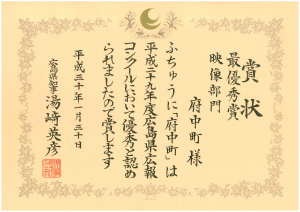 賞状
最優秀賞
映像部門
府中町様
ふちゅうに「府中町」は
平成二十九年度広島県広報
コンクールにおいて優秀と認め
られましたので賞します
平成三十年一月三十日
広島県知事 湯﨑英彦